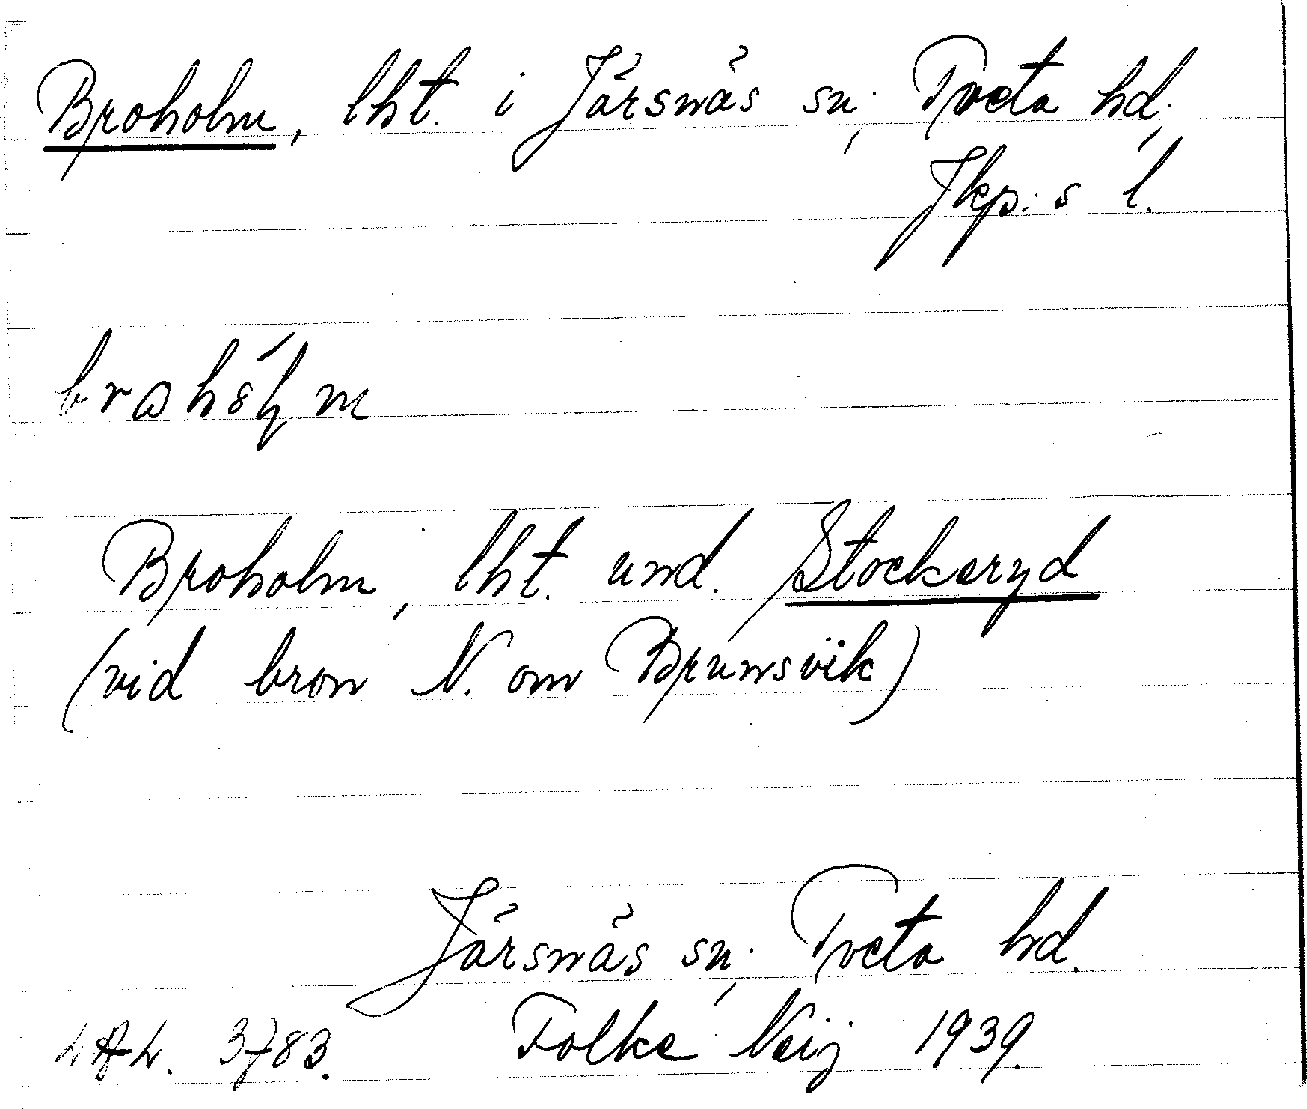 Broholm, lht. i Järsnäs sn, Tveta hd,
Jkp:s l.
Broholm, lht. und. Stockeryd
(vid bron N. om Brunsvik)
Järsnäs sn, Tveta hd.
LAL. 3783. Folke Neij 1939.